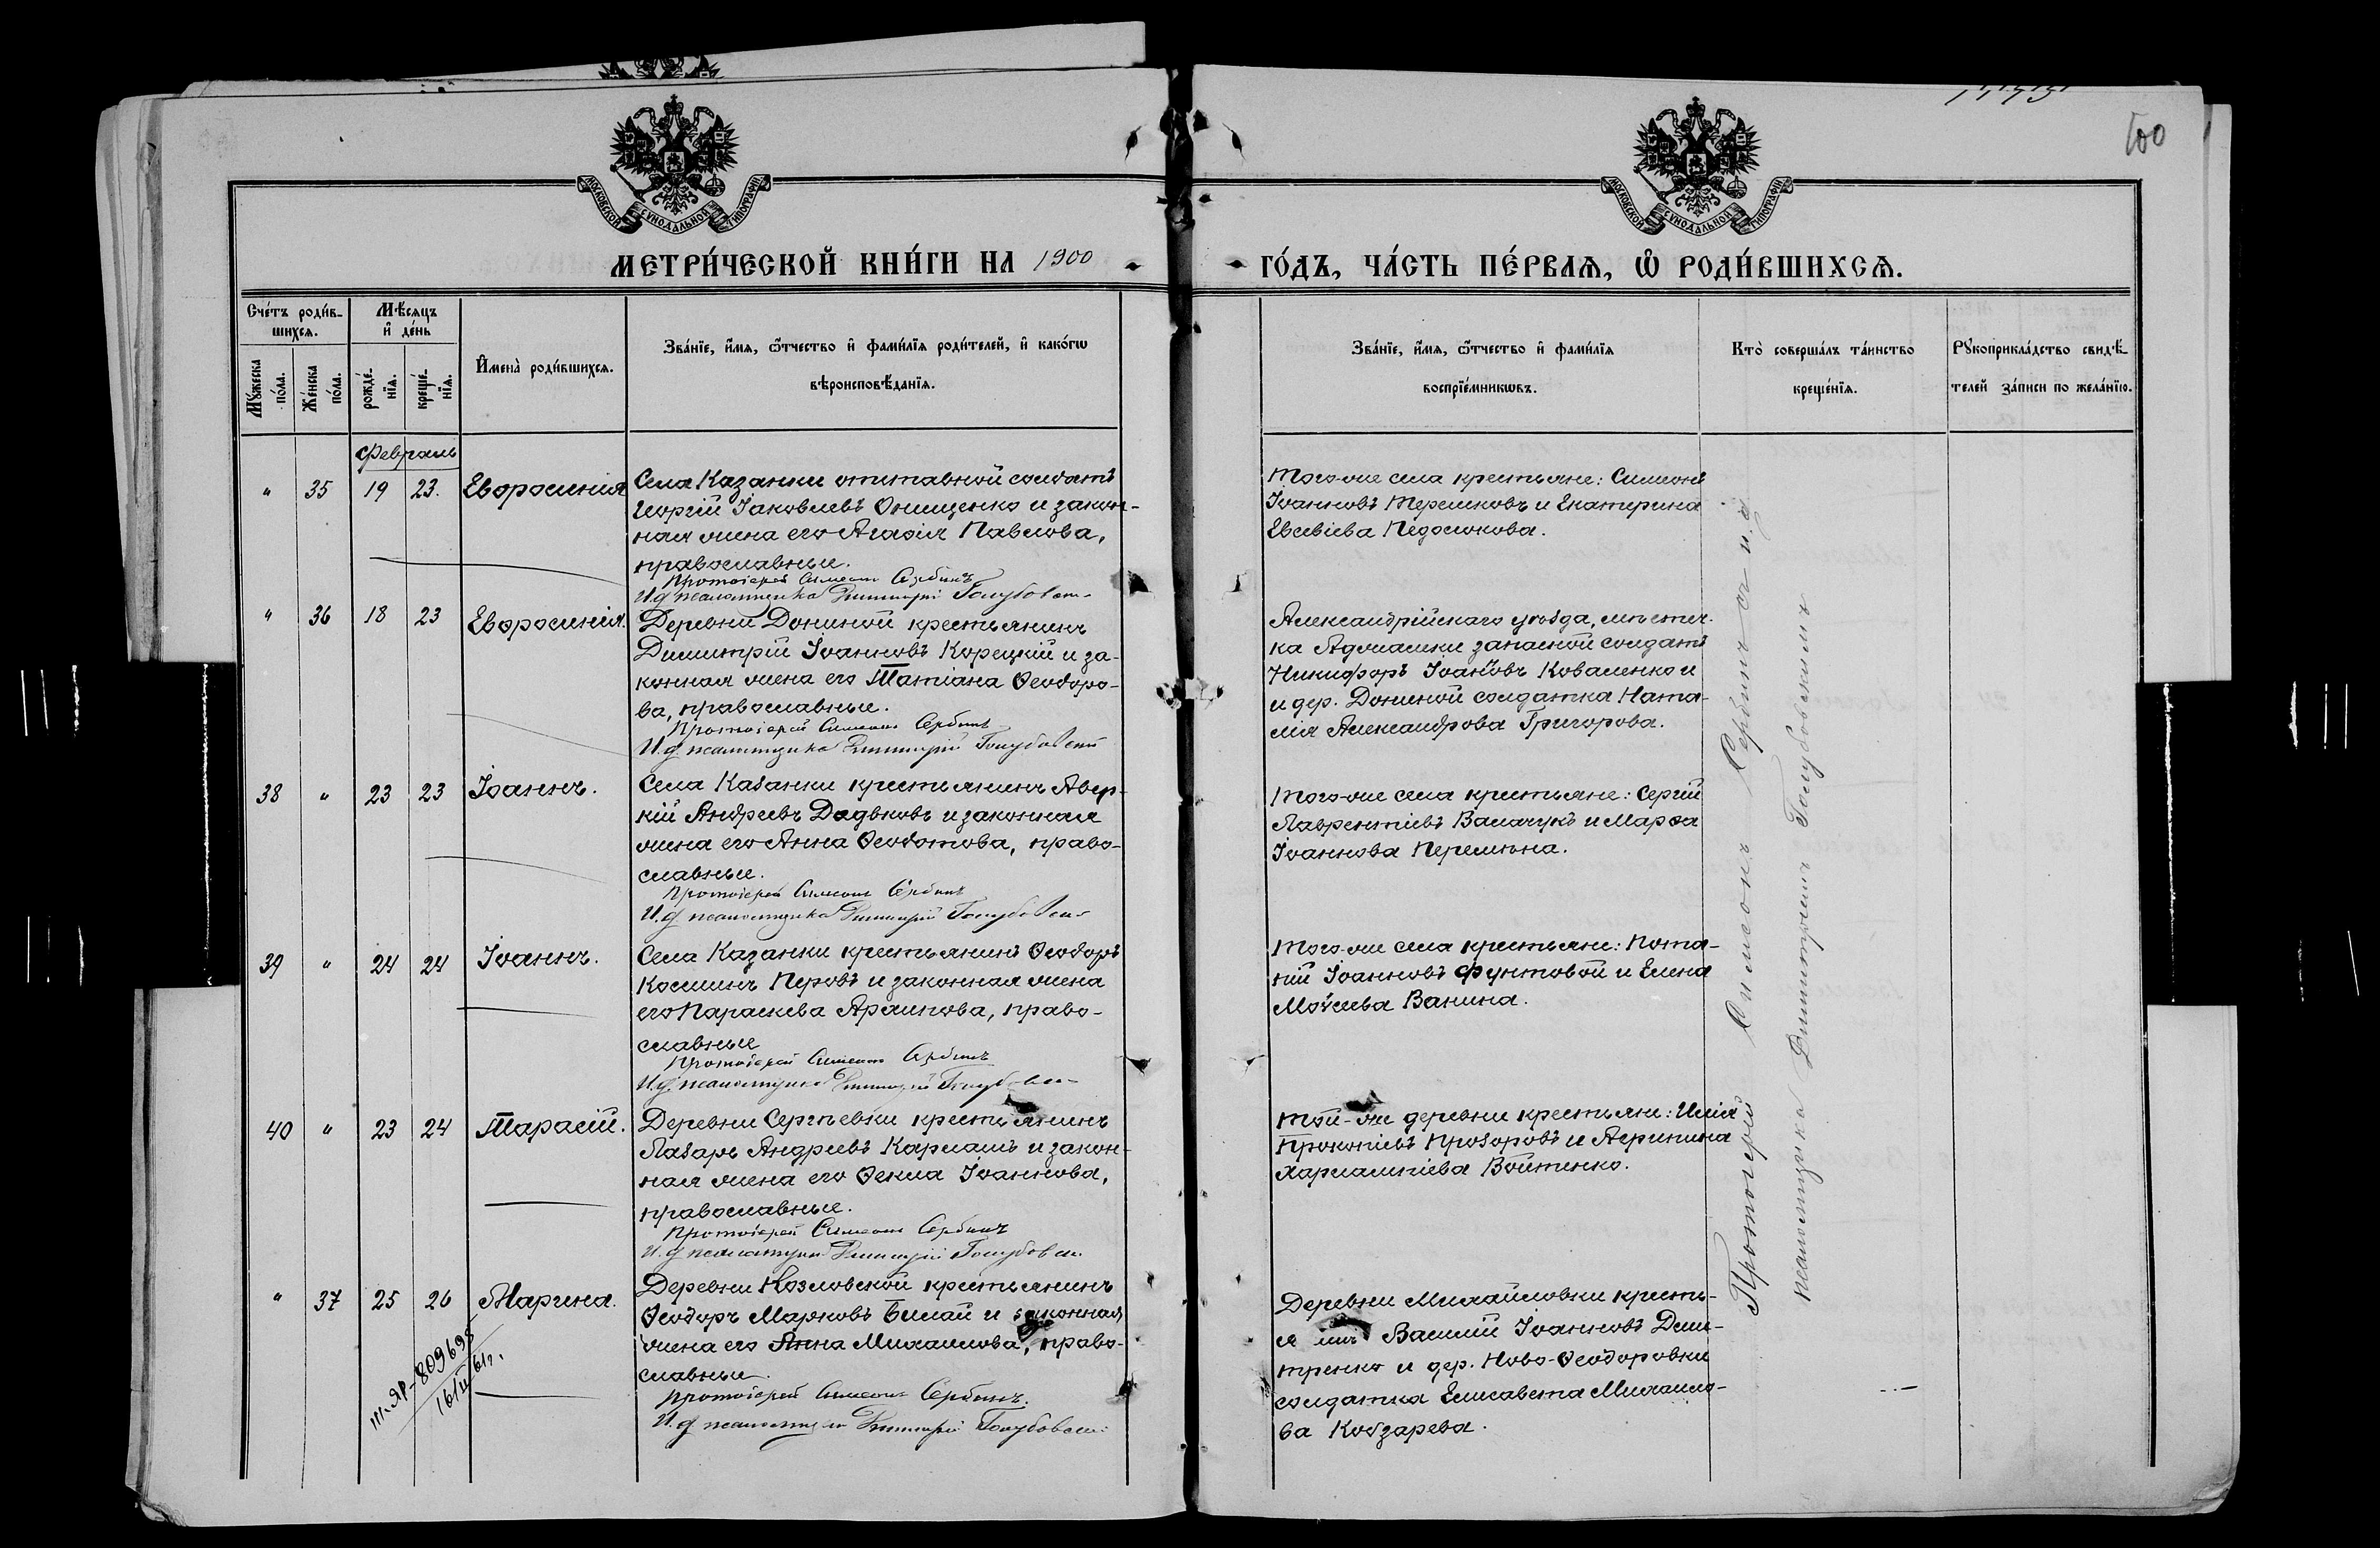 100
МОСКОВСКОЙ СѴНОДАЛЬНОЙ ТИПОГРАФІИ
МОСКОВСКОЙ СѴНОДАЛЬНОЙ ТИПОГРАФІИ
МЕТРИ́ЧЕСКОЙ КНИ́ГИ НА 1900
ГО́ДЪ, ЧА́СТЬ ПЕ́РВАѦ, Ѡ҆ РОДИ́ВШИХСѦ.
Сче́тъ роди́в-
шихсѧ.
Мѣ́сѧцъ
и҆ де́нь
Мꙋ́жеска
по́ла.
Же́нска
по́ла.
рожде́-
нїѧ.
креще́-
нїѧ.
И҆мена̀ роди́вшихсѧ.
Зва́нїе, и҆́мѧ, ѻ҆́тчество и҆ фами́лїѧ роди́телей, и҆ како́гѡ
вѣроисповѣ́данїѧ.
Зва́нїе, и҆́мѧ, ѻ҆́тчество и҆ фами́лїѧ
воспрїе́мникѡвъ.
Кто̀ соверша́лъ та́инство
креще́нїѧ.
Рꙋкоприкла́дство свидѣ́-
телей за́писи по жела́нїю.
Февраль
" 35 19 23. Евфросинія
Села Казанки отставной солдатъ
Георгій Іаковлевъ Онищенко и закон-
ная жена его Агафія Павлова,
православные.
Протоіерей Симеонъ Сербинъ
И.д. псаломщика Димитрій Голубовск
Того-же села крестьяне: Симеонъ
Іоанновъ Терешковъ и Екатерина
Евсевіева Недосюкова.
" 36 18 23 Евфросинія.
Деревни Дониной крестьянинъ
Димитрій Іоанновъ Корецкій и за-
конная жена его Татіана Ѳеодоро-
ва, православные.
Протоіерей Симеонъ Сербинъ
И.д. псаломщика Димитрій Голубовскій
Александрійскаго уѣзда, мѣстеч-
ка Аджамки запасной солдатъ
Никифоръ Іоановъ Коваленко и
и дер. Дониной солдатка Ната-
лія Александрова Григорова.
38 " 23 23 Іоаннъ.
Села Казанки крестьянинъ Авер-
кій Андреевъ Дядьковъ и законная
жена его Анна Ѳеодотова, право-
славные.
Протоіерей Симеонъ Сербинъ
И.д. псаломщика Димитрій Голубовск
Того-же села крестьяне: Сергій
Лаврентіевъ Ваначукъ и Марѳа
Іоаннова
39 " 24 24 Іоаннъ.
Села Казанки крестьянинъ Ѳеодоръ
Косминъ Перовъ и законная жена
его Параскева Архипова, право-
славные
Протоіерей Симеонъ Сербинъ
И.д. псаломщика Димитрій Голубовск
Того-же села крестьяне: Пота-
пій Іоанновъ Фунтовой и Елена
Моѵсеева Ванина.
40 " 23 24 Тарасій.
Деревни Сергѣевки крестьянинъ
Лазарь Андреевъ Кармашъ и закон-
ная жена его Ѳекла Іоаннова,
православные.
Протоіерей Симеонъ Сербинъ
И.д. псаломщика Димитрій Голубовск
Той-же деревни крестьяне: Илія
Прокопіевъ Прозоровъ и Агрипина
Харлампіева Войтенко.
" 37 25 26 Марина.
Деревни Козловской крестьянинъ
Ѳеодоръ Марковъ Билай и законная
жена его Анна Михаилова, право-
славные.
Протоіерей Симеонъ Сербинъ.
И.д. псаломщика Димитрій Голубовскі
Деревни Михайловки кресть-
янинъ Василій Іоанновъ Дми-
тренко и дер. Ново-Ѳеодоровки
солдатка Елисавета Михаило-
ва Кобзарева.
ІІІ-ЯР-809695
16/II 61г.
Протоіерей Симеонъ Сербинъ съ и.д.
псаломщика Димитріемъ Голубовскимъ